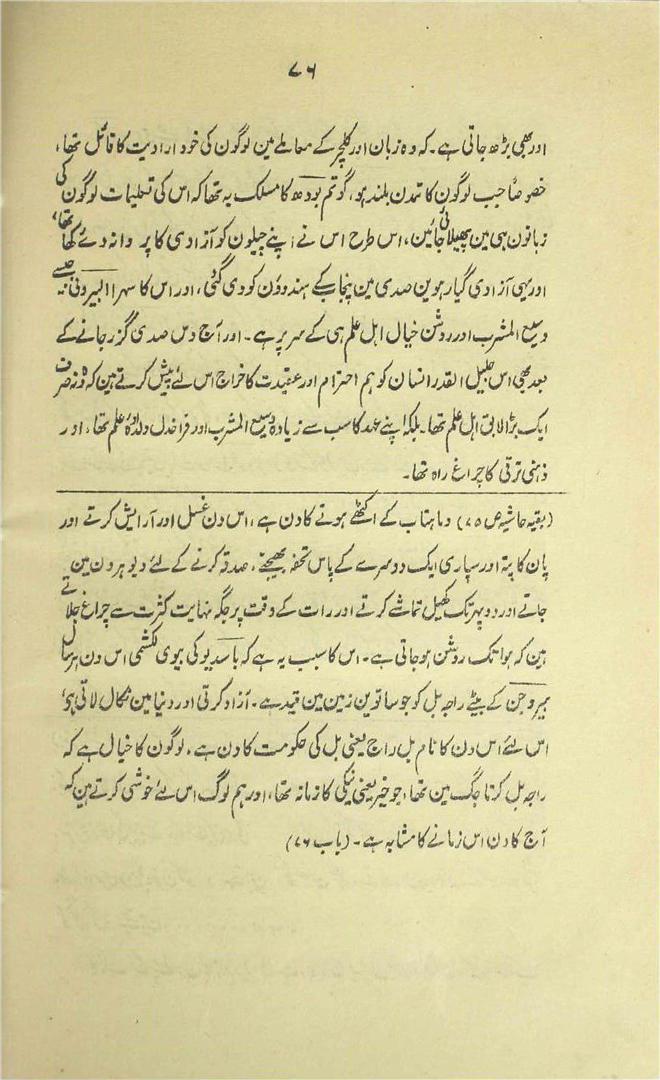 ۷۶
اور بھی بڑھ جاتی ہے۔ کہ وہ زبان اور کلچر کے معاملے مین لوگون کی خود ارادیت کا قائل تھا،
خصوصاً جب لوگون کا تمدن بلند ہو، گوتم بودھ کا مسلک یہ تھا کہ اس کی تعلیمات لوگون کی
زبانون ہی مین پھیلائی جائین، اس طرح اس نے اپنے چیلون کو آزادی کا پروانہ دے رکھا تھا،
اور یہی آزادی گیارہوین صدی مین پنجاب کے ہندوؤن کو دی گئی، اور اس کا سہرا البیرونی جیسے
وسیع المشرب اور روشن خیال اہل علم ہی کے سر پر ہے۔ اور آج دس صدی گزر جانے کے
بعد بھی اس جلیل القدر انسان کو ہم احترام اور عقیدت کا خراج اس لئے پیش کرتے ہین کہ وہ نہ صرف
ایک بڑا لایق اہل علم تھا۔ بلکہ اپنے عہد کا سب سے زیادہ وسیع المشرب اور فراخدل دلدادۂ علم تھا، اور
ذہنی ترقی کا چراغ راہ تھا۔
(بقیہ حاشیہ ص ۷۵) و ماہتاب کے اکٹھے ہونے کا دن ہے، اس دن غسل اور آرایش کرتے اور
پان کا پتہ اور سپاری ایک دوسرے کے پاس تحفہ بھیجتے، صدقہ کرنے کے لئے دیوہرون مین
جاتے اور دوپہر تک کھیل تماشے کرتے اور رات کے وقت ہر جگہ نہایت کثرت سے چراغ جلاتے
ہین کہ ہوا تک روشن ہو جاتی ہے۔ اس کا سبب یہ ہے کہ باسدیو کی بیوی لکشمی اس دن ہر سال
بیروجن کے بیٹے راجہ بل کو جو ساتوین زمین مین قید ہے۔ آزاد کرتی اور دنیا مین نکال لاتی ہے،
اس لئے اس دن کا نام بل راج یعنی بل کی حکومت کا دن ہے، لوگون کا خیال ہے کہ
راجہ بل کرتا جگ مین تھا، جو خیر یعنی نیکی کا زمانہ تھا، اور ہم لوگ اس لئے خوشی کرتے ہین کہ
آج کا دن اس زمانے کا مشابہ ہے۔ (باب ۷۶)